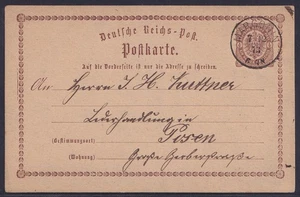 Deutsche Reichs-Post.
Postkarte.
Auf die Vorderseite ist nur die Adresse zu schreiben.
An Herrn J. H. Kuttner
Lederhandlung in
(Bestimmungsort) Posen
(Wohnung) Große Gerberstraße